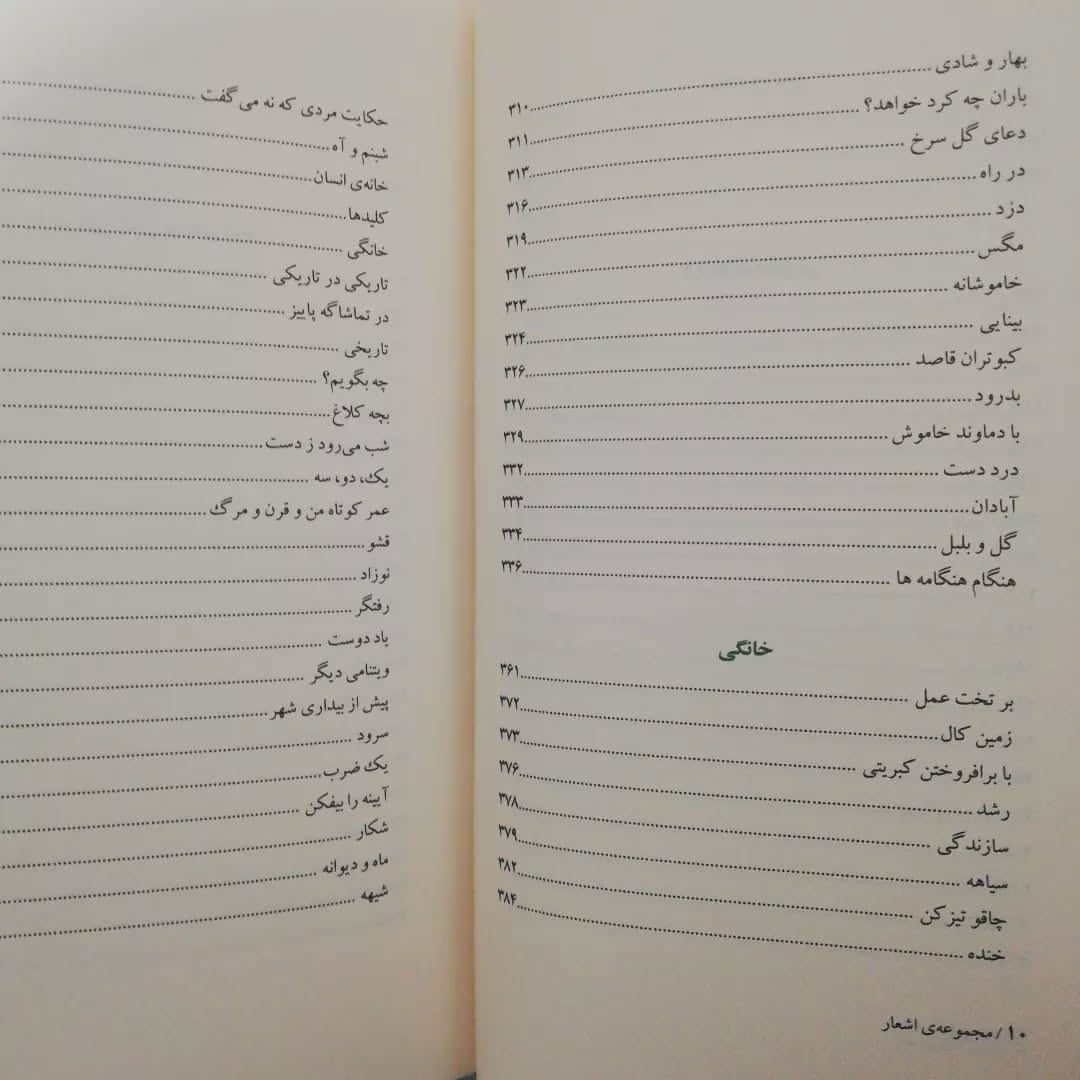 بهار و شادی ........ ۳۱۰
باران چه کرد خواهد؟ ........ ۳۱۱
دعای گل سرخ ........ ۳۱۳
در راه ........ ۳۱۶
دزد ........ ۳۱۹
مگس ........ ۳۲۲
خاموشانه ........ ۳۲۳
بینایی ........ ۳۲۴
کبوتران قاصد ........ ۳۲۶
بدرود ........ ۳۲۷
با دماوند خاموش ........ ۳۲۹
درد دست ........ ۳۳۲
آبادان ........ ۳۳۳
گل و بلبل ........ ۳۳۴
هنگام هنگامه ها ........ ۳۳۶
خانگی
بر تخت عمل ........ ۳۶۱
زمین کال ........ ۳۷۲
با برافروختن کبریتی ........ ۳۷۳
رشد ........ ۳۷۶
سازندگی ........ ۳۷۸
سیاهه ........ ۳۷۹
چاقو تیز کن ........ ۳۸۲
خنده ........ ۳۸۴
۱۰ / مجموعه‌ی اشعار
حکایت مردی که نه می گفت ........
شبنم و آه ........
خانه‌ی انسان ........
کلیدها ........
خانگی ........
تاریکی در تاریکی ........
در تماشاگه پاییز ........
تاریخی ........
چه بگویم؟ ........
بچه کلاغ ........
شب می‌رود ز دست ........
یک، دو، سه ........
عمر کوتاه من و قرن و مرگ ........
قشو ........
نوزاد ........
رفتگر ........
یاد دوست ........
ویتنامی دیگر ........
پیش از بیداری شهر ........
سرود ........
یک ضرب ........
آیینه را بیفکن ........
شکار ........
ماه و دیوانه ........
شیهه ........